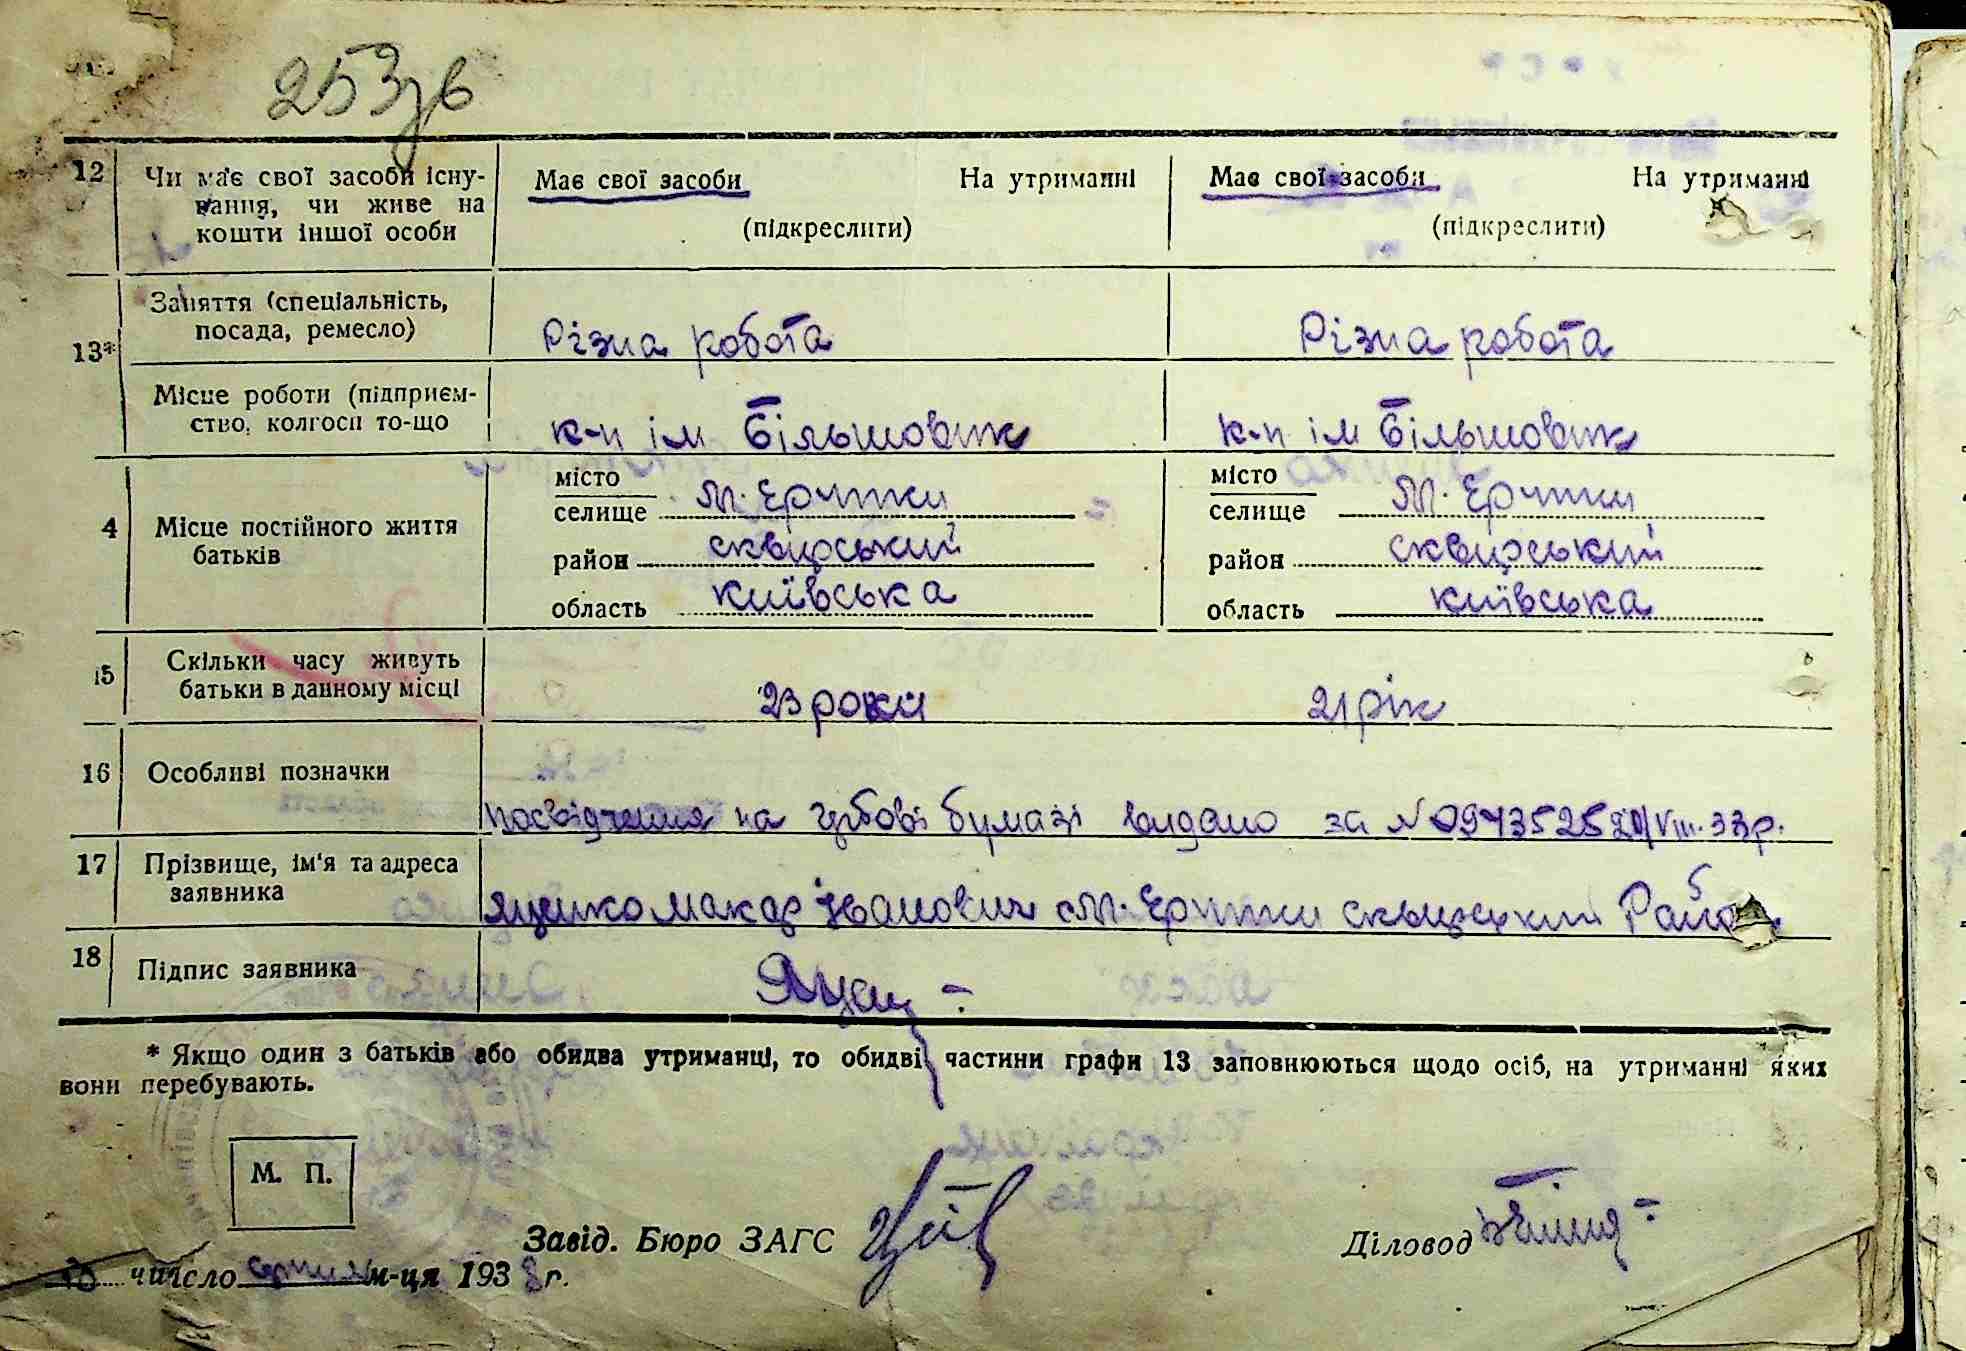 253зв
12 Чи має свої засоби існу- Має свої засоби На утриманні Має свої засоби На утриманні
вання, чи живе на
кошти іншої особи (підкреслити) (підкреслити)
13* Заняття (спеціальність,
посада, ремесло) Різна робота Різна робота
Місце роботи (підприєм-
ство, колгосп то-що к-п ім Більшовик к-п ім Більшовик
4 Місце постійного життя
батьків
місто
селище м. Єрчики
район сквирський
область київська
місто
селище м. Єрчики
район сквирський
область київська
15 Скільки часу живуть
батьки в данному місці 23 роки 21 рік
16 Особливі позначки
посвідчення на гербові бумазі видано за №0973525 20/VIII-33р.
17 Прізвище, ім'я та адреса
заявника Яценко макар Іванович с м. Єрчики сквирський Район
18 Підпис заявника Яцен
* Якщо один з батьків або обидва утриманці, то обидві частини графи 13 заповнюються щодо осіб, на утриманні яких
вони перебувають.
М. П.
Завід. Бюро ЗАГС Діловод
число серпня м-ця 193 г.